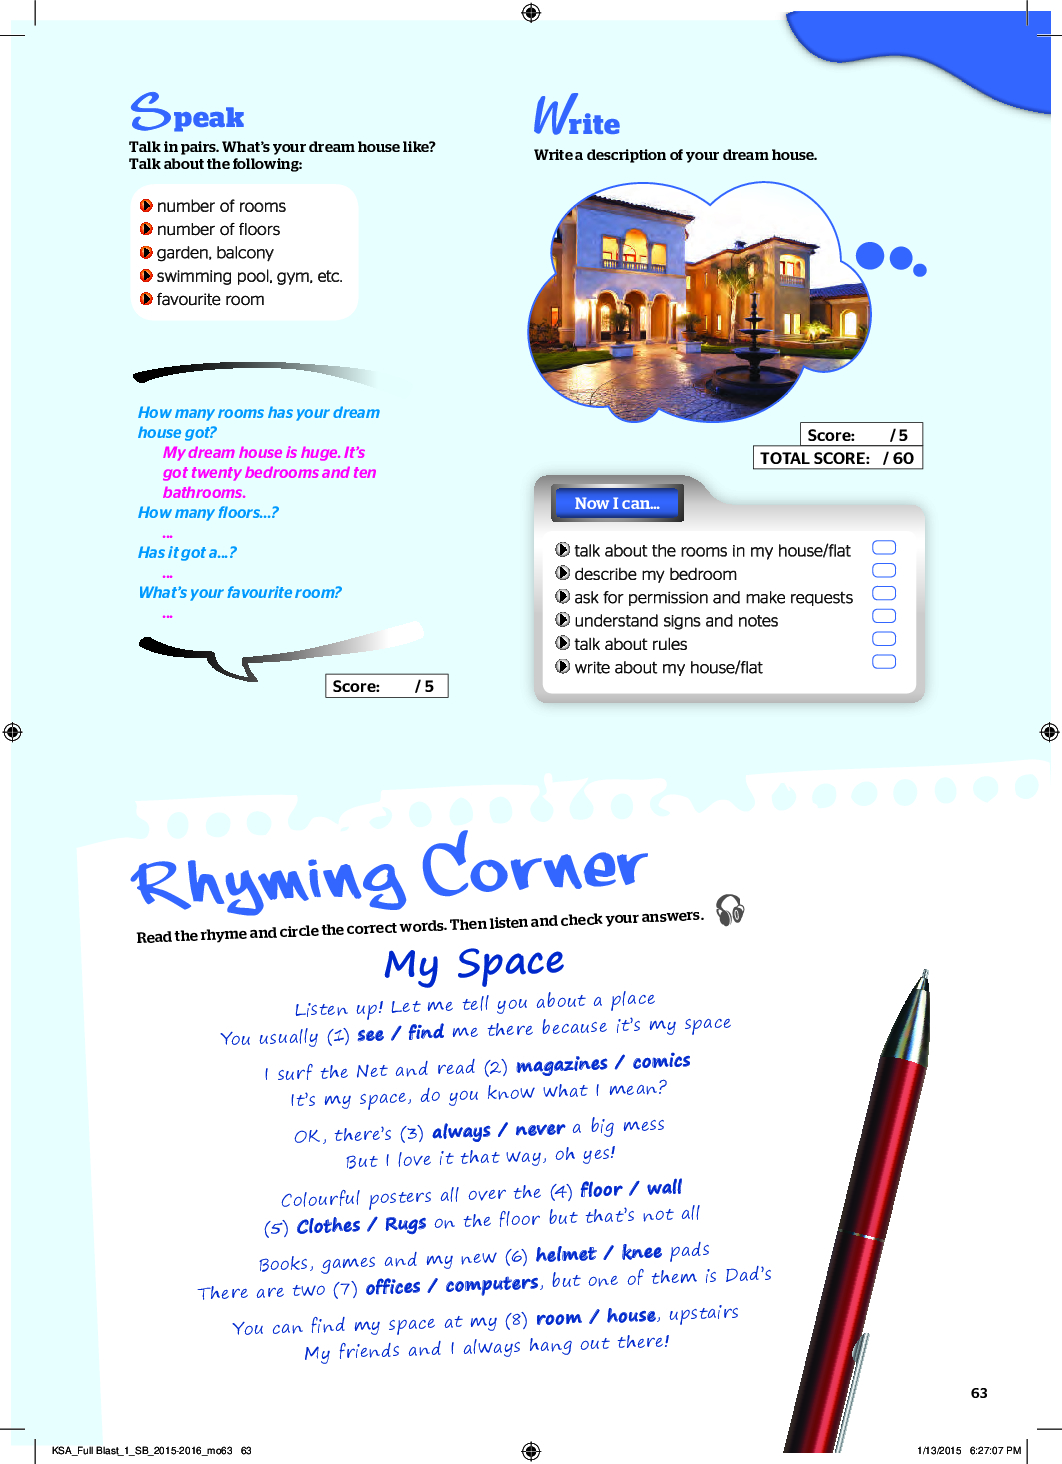 Speak
Talk in pairs. What's your dream house like?
Talk about the following:
number of rooms
number of floors
garden, balcony
swimming pool, gym, etc.
favourite room
How many rooms has your dream
house got?
My dream house is huge. It's
got twenty bedrooms and ten
bathrooms.
How many floors...?
...
Has it got a...?
...
What's your favourite room?
...
Score: / 5
Write
Write a description of your dream house.
Score: / 5
TOTAL SCORE: / 60
Now I can...
talk about the rooms in my house/flat
describe my bedroom
ask for permission and make requests
understand signs and notes
talk about rules
write about my house/flat
Rhyming Corner
Read the rhyme and circle the correct words. Then listen and check your answers.
My Space
Listen up! Let me tell you about a place
You usually (1) see / find me there because it's my space
I surf the Net and read (2) magazines / comics
It's my space, do you know what I mean?
OK, there's (3) always / never a big mess
But I love it that way, oh yes!
Colourful posters all over the (4) floor / wall
(5) Clothes / Rugs on the floor but that's not all
Books, games and my new (6) helmet / knee pads
There are two (7) offices / computers, but one of them is Dad's
You can find my space at my (8) room / house, upstairs
My friends and I always hang out there!
63
KSA_Full Blast_1_SB_2015-2016_mo63 63
1/13/2015 6:27:07 PM